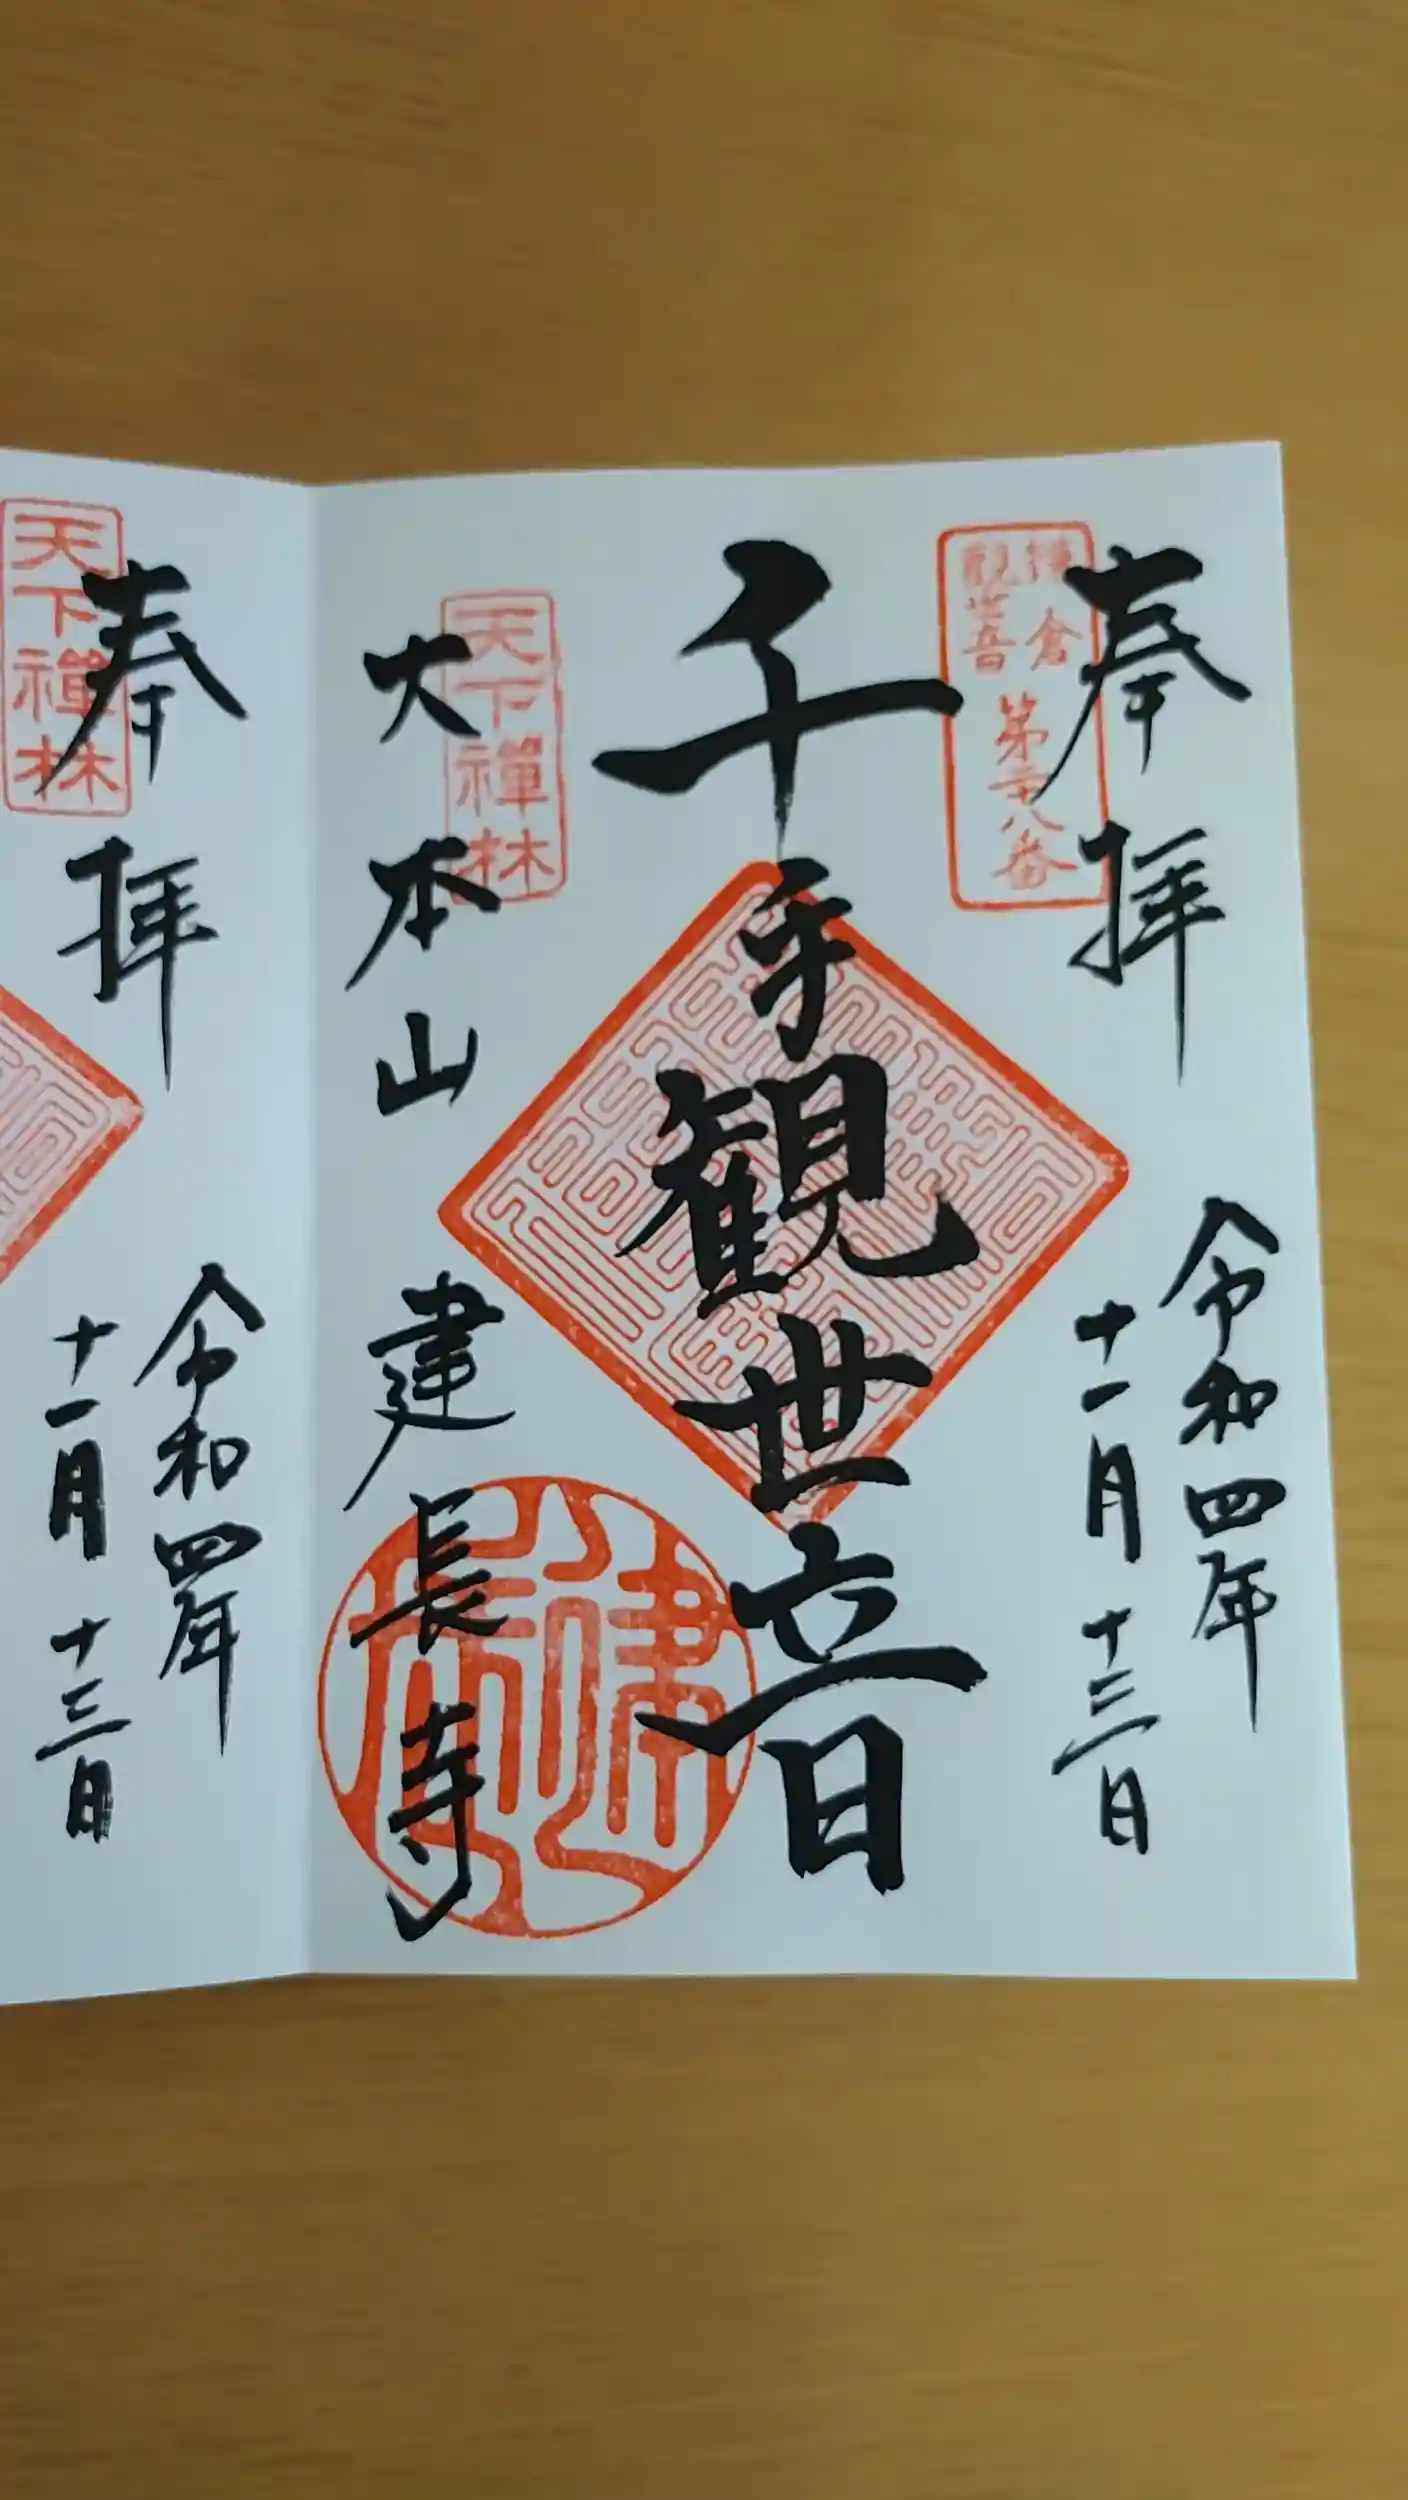 奉拝
令和四年
十一月十三日
鎌倉
観世音
第二十八番
千手観世音
天下禅林
大本山建長寺
天下禅林
奉拝
令和四年
十一月十三日